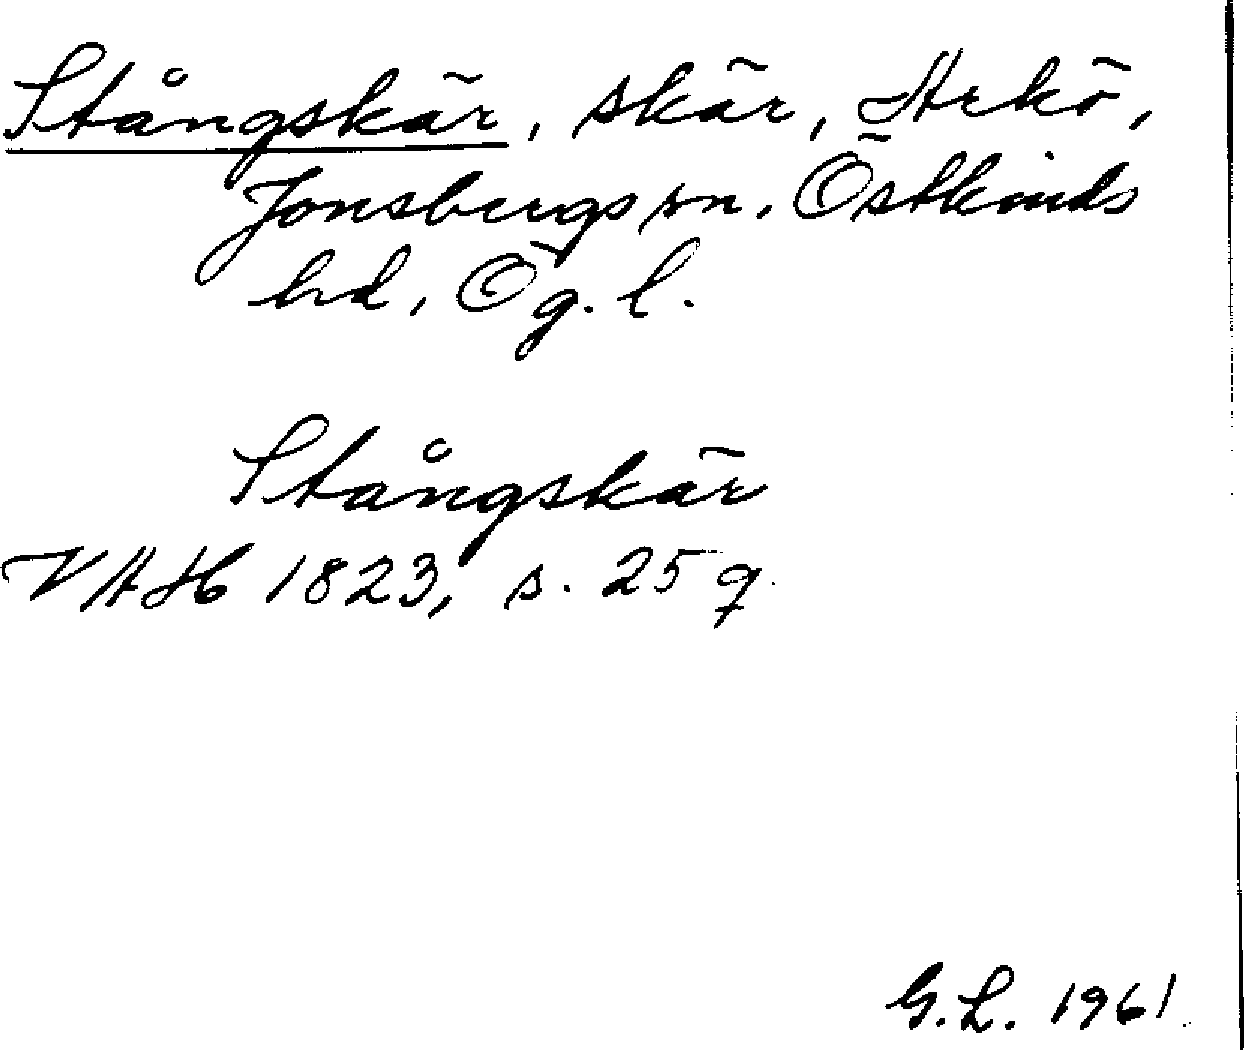 Stångskär, skär, Arkö,
Jonsbergs sn. Östkinds
hd, Ög. l.
Stångskär
VAH 1823, s. 259
G.L. 1961